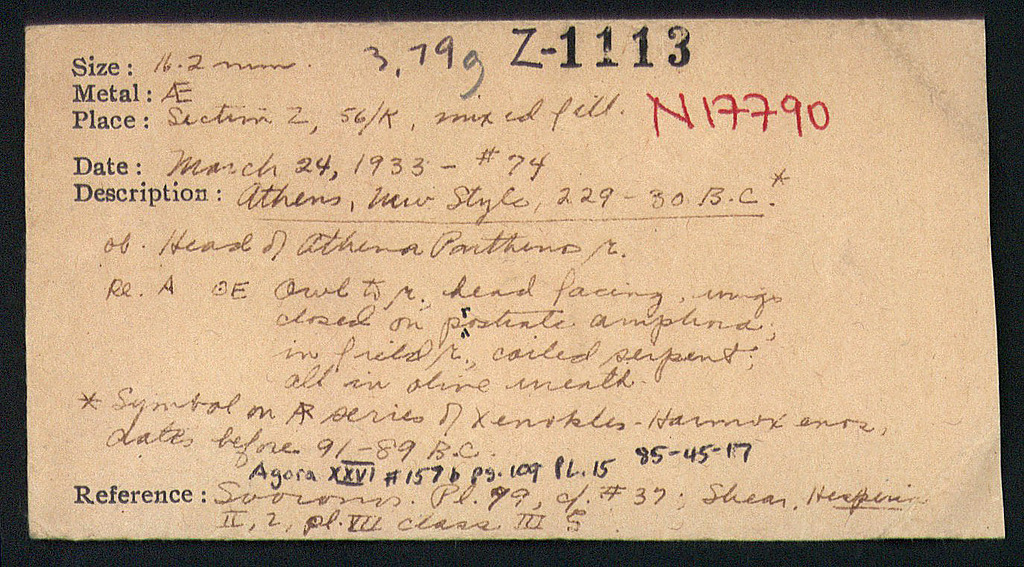 3,79g Z-1113
Size: 16.2 mm.
Metal: Æ
Place: Section Z, 56/K, mixed fill. N17790
Date: March 24, 1933 - #74
Description: Athens, New Style, 229-30 B.C.*
ob. Head of Athena Parthenos r.
Re. A ΘE Owl to r., head facing, wings
closed on prostrate amphora;
in field r., coiled serpent;
all in olive wreath.
* Symbol on AR series of Xenokles-Harmoxenos,
dates before 91-89 B.C.
Agora XXVI #157b pg. 109 PL. 15 85-45-17
Reference: Svoronos. Pl. 79, cf. #37; Shear, Hesperia
II, 2, pl. VII class III 5